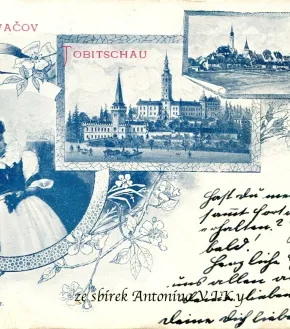 VAČOV
TOBITSCHAU
Hast du me
samt Hort
erhalten?
bald!
Herzliche
uns allen a
lieben
deine dich liebe
ze sbírek Antonína V.J.K.